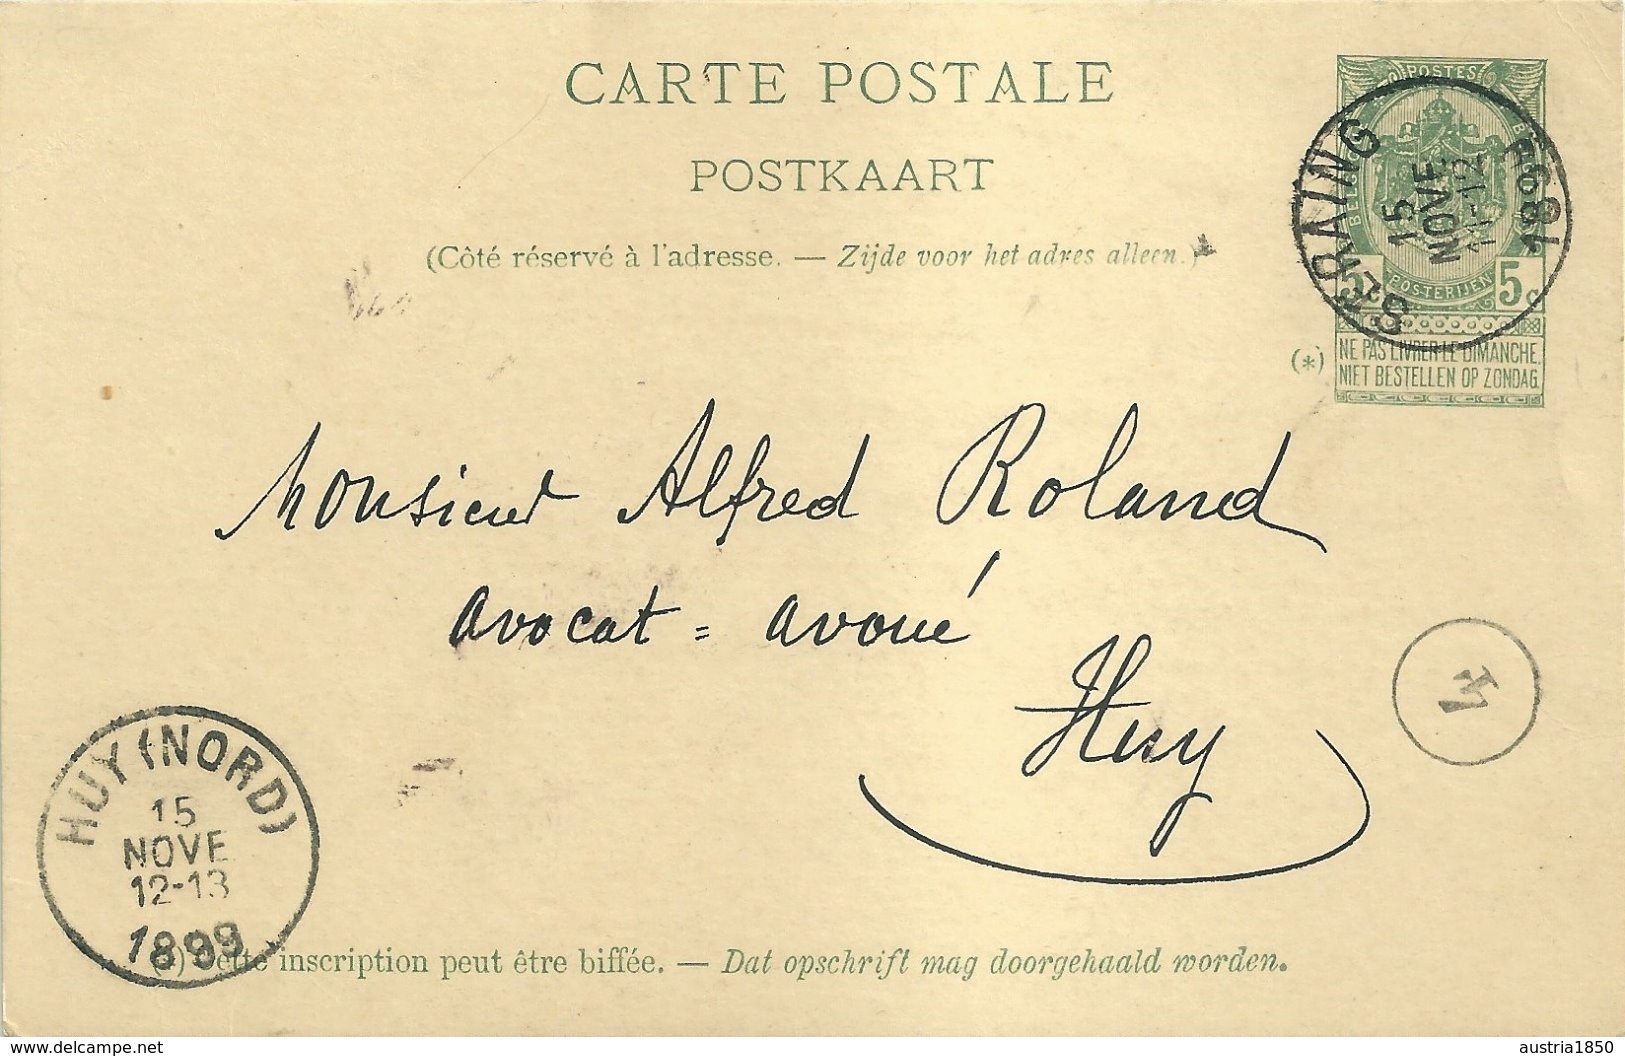 CARTE POSTALE
POSTKAART
(Côté réservé à l'adresse. — Zijde voor het adres alleen.)
POSTES
BELGIQUE
POSTERIJEN
5c 5c
SERAING
15
NOVE
11-12
1899
(*) NE PAS LIVRER LE DIMANCHE.
NIET BESTELLEN OP ZONDAG.
Monsieur Alfred Roland
avocat = avoué
Huy
HUY (NORD)
15
NOVE
12-13
1899
(*) Cette inscription peut être biffée. — Dat opschrift mag doorgehaald worden.
www.delcampe.net
austria1850